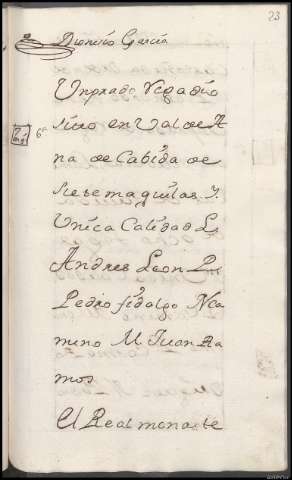 23
Dionisio Garcia
Un prado Regadio
sito en Val de A
6a
na de Cabida de
siete maquilas Y.
Unica Calidad L.
Andres Leon P.
Pedro fidalgo N Ca
mino M Juan Ra
mos
El Real monaste